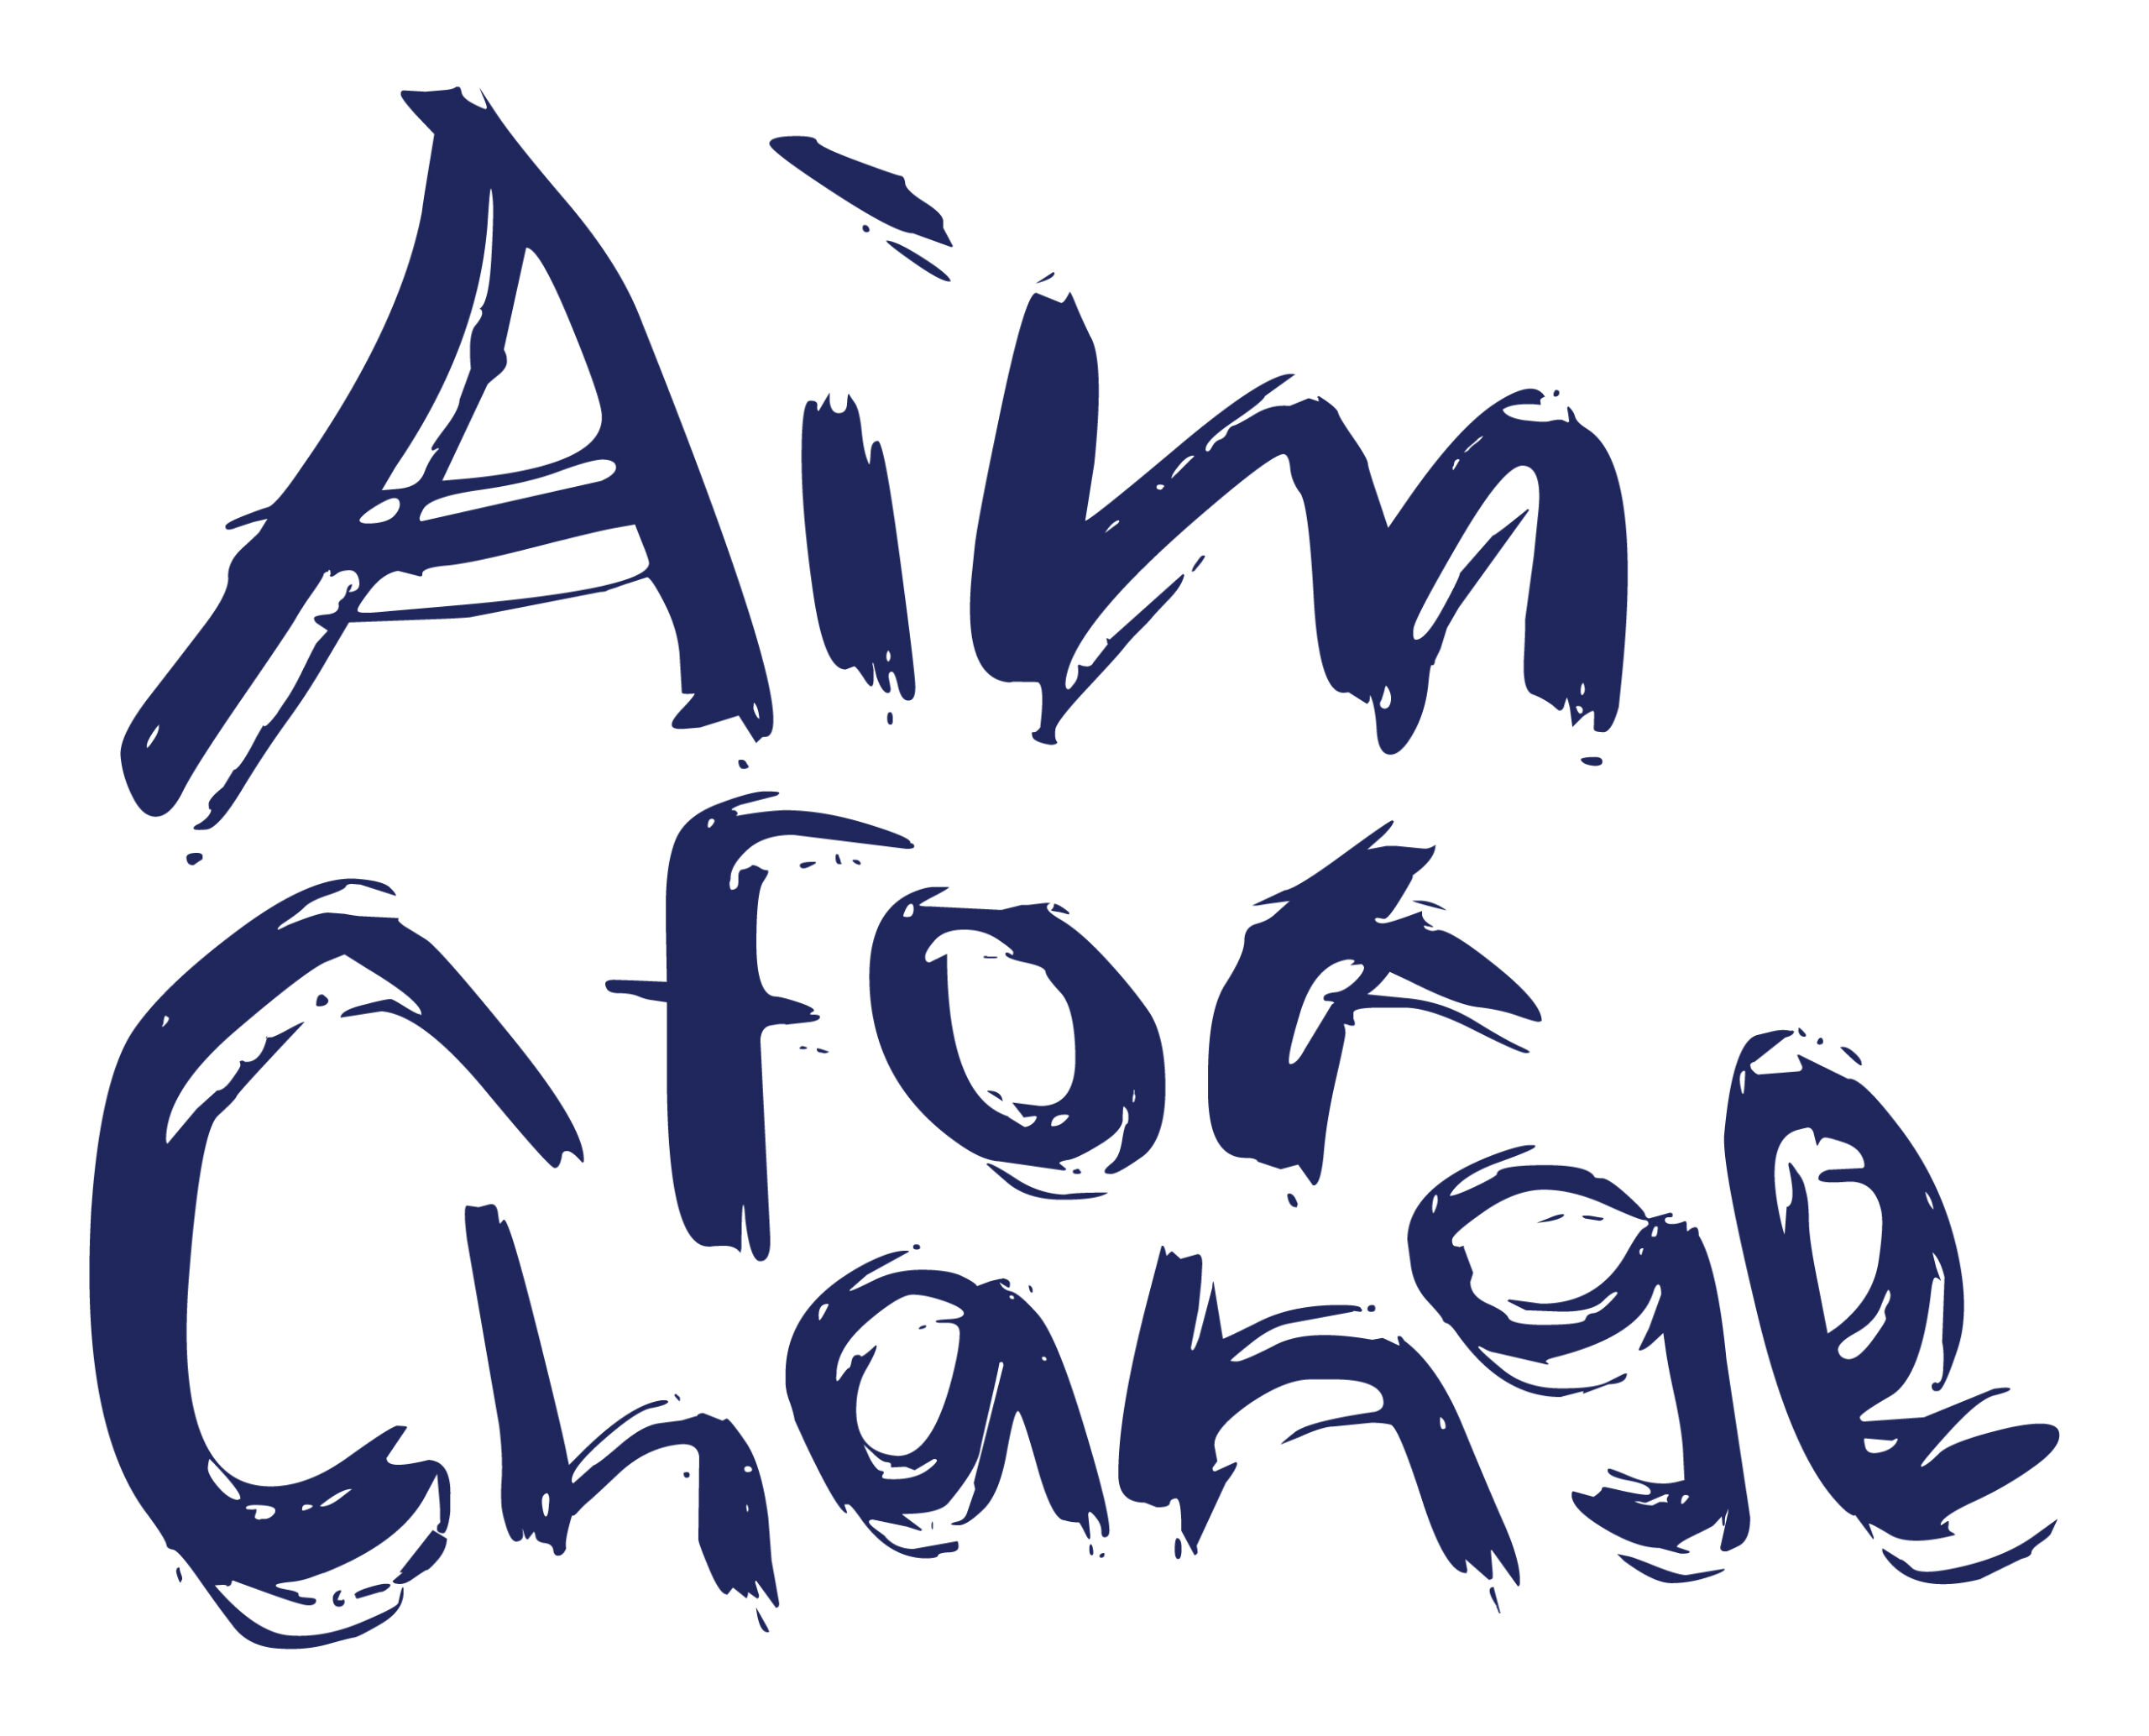 Aim
for
Change